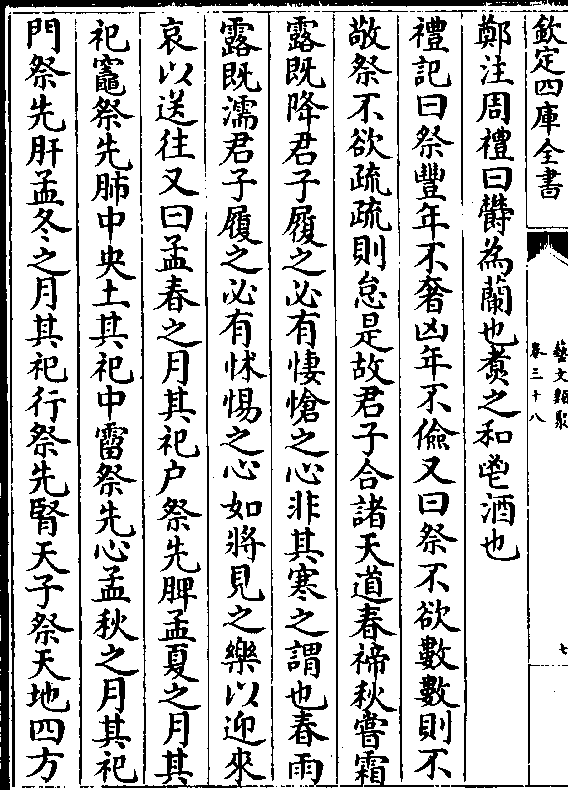 欽定四庫全書
藝文類聚
卷三十八
七
鄭注周禮曰欝為蘭也煑之和鬯酒也
禮記曰祭豐年不奢凶年不儉又曰祭不欲數數則不
敬祭不欲疏疏則怠是故君子合諸天道春禘秋嘗霜
露既降君子履之必有悽愴之心非其寒之謂也春雨
露既濡君子履之必有怵惕之心如將見之樂以迎來
哀以送往又曰孟春之月其祀户祭先脾孟夏之月其
祀竈祭先肺中央土其祀中霤祭先心孟秋之月其祀
門祭先肝孟冬之月其祀行祭先腎天子祭天地四方